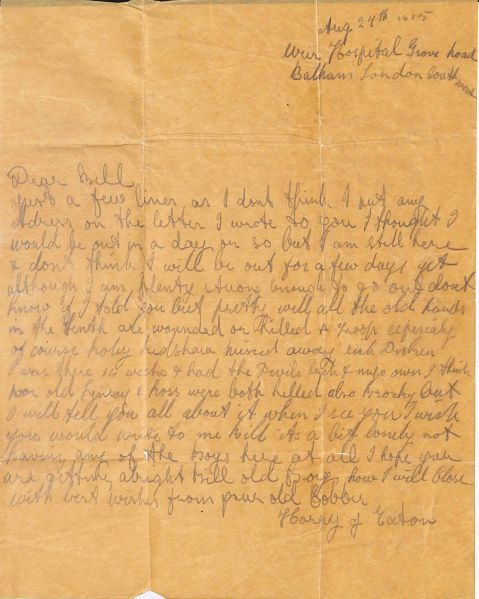 Aug 24th 1915
Weir Hospital Grove Road
Balham London South west
Dear Bill
Just a few lines as I dont think I put any
address on the letter I wrote to you I thought I
would be out in a day or so but I am still here
& dont think I will be out for a few days yet
although I am plenty strong enough to go out dont
know if I told you but pretty well all the old hands
in the tenth are wounded or killed A troop especialy
of course
I was there 14 weeks & had the Devils luck & my own I think
poor old & Ross were both killed also Brocky but
I will tell you all about it when I see you I wish
you would write to me Bill its a bit lonely not
having any of the boys here at all I hope you
are getting alright Bill old now I will close
with best wishes from your old Cobber
Harry J Eaton